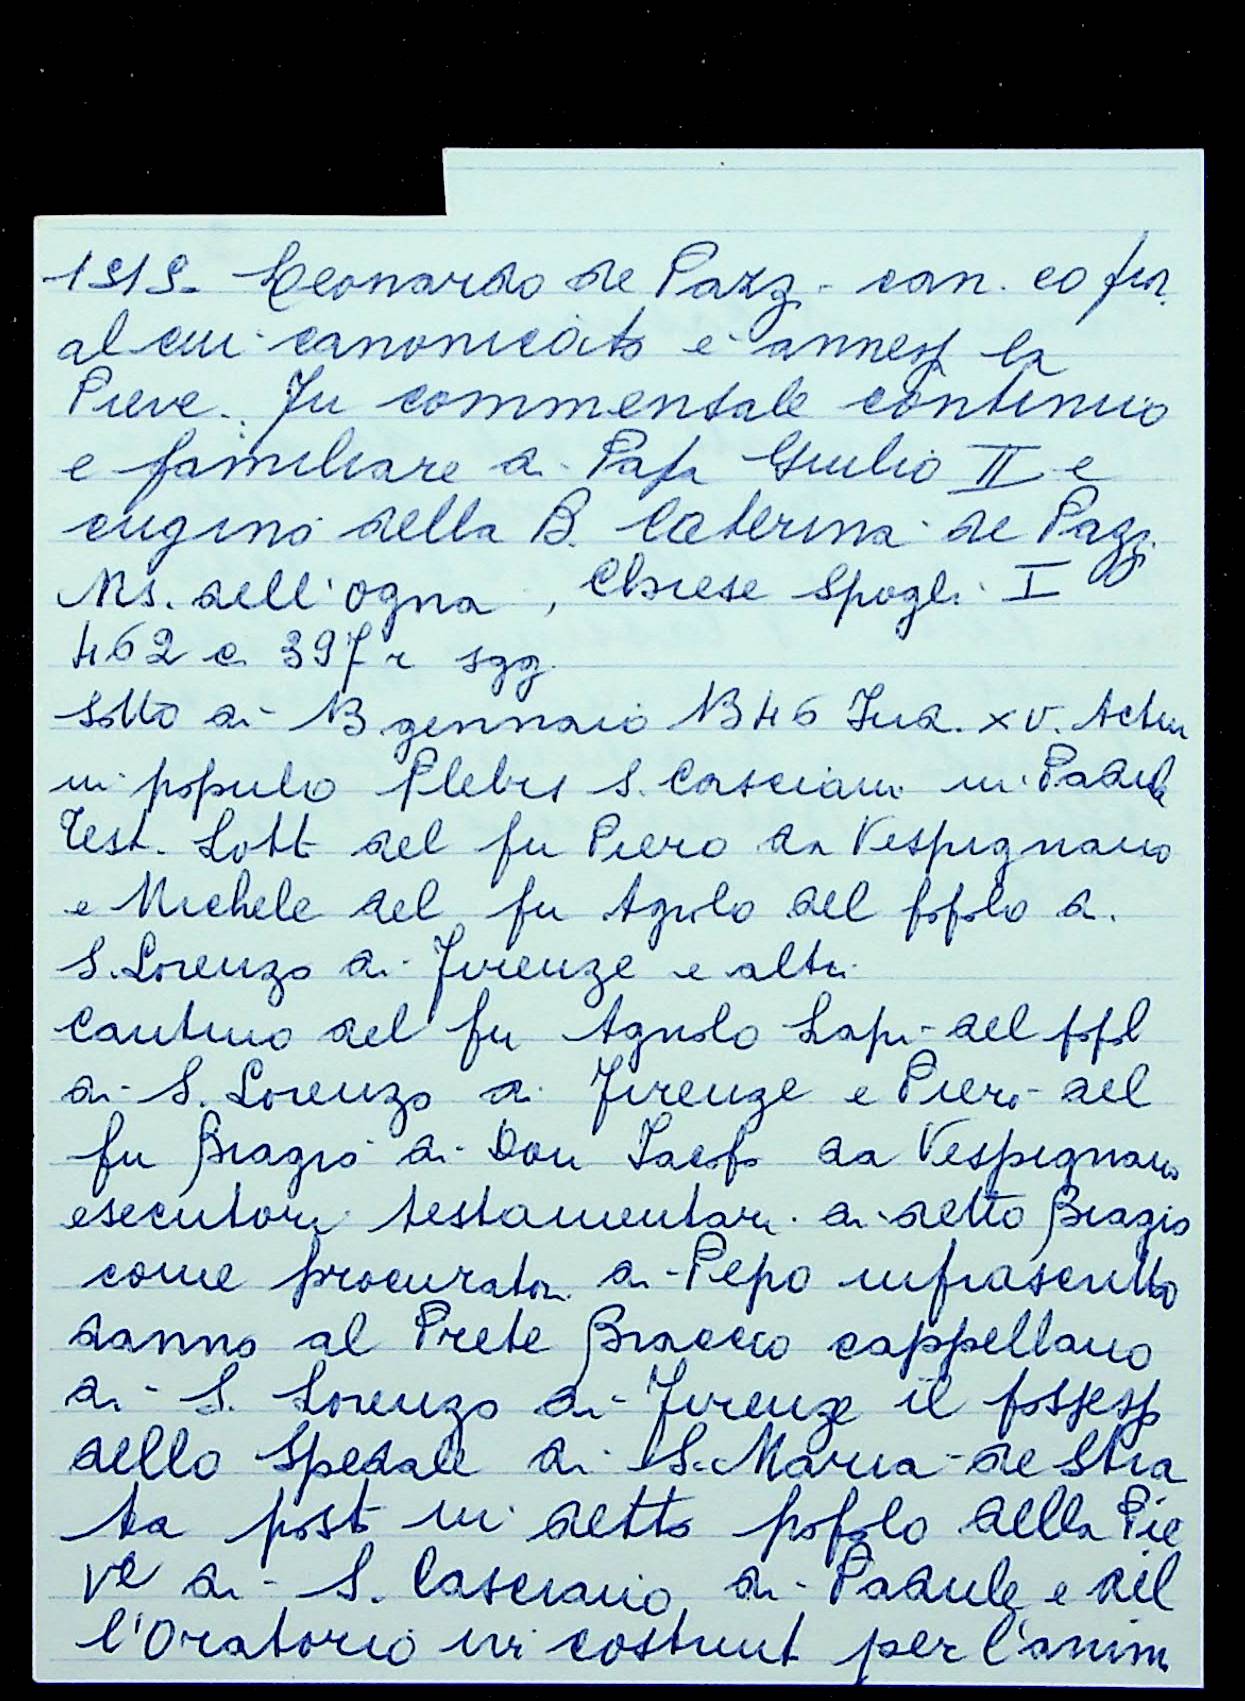 1513. Leonardo de Pazzi can. co fior.
al cui canonicato è annesso la
Pieve. Fu commensale continuo
e familiare di Papa Giulio II e
cugino della B. Caterina de Pazzi
Ms. dell'Ogna, Chiese Spogli I
462 c. 397 r sgg
Sotto di 13 gennaio 1346 Ind. XV. Actum
in populo Plebis S. Casciani in Padule
Test. Lotti del fu Piero da Vespignano
e Michele del fu Agnolo del popolo di
S. Lorenzo di Firenze e altri
Cantino del fu Agnolo Lapi del popol
di S. Lorenzo di Firenze e Piero del
fu Biagio di Don Iacopo da Vespignano
esecutori testamentari di detto Biagio
come procuratori di Pepo infrascritto
danno al Prete Braccio cappellano
di S. Lorenzo di Firenze il possesso
dello Spedale di S. Maria de Stra
ta posto in detto popolo della Pie
ve di S. Casciano di Padule e del
l'Oratorio ivi costruit per l'anim